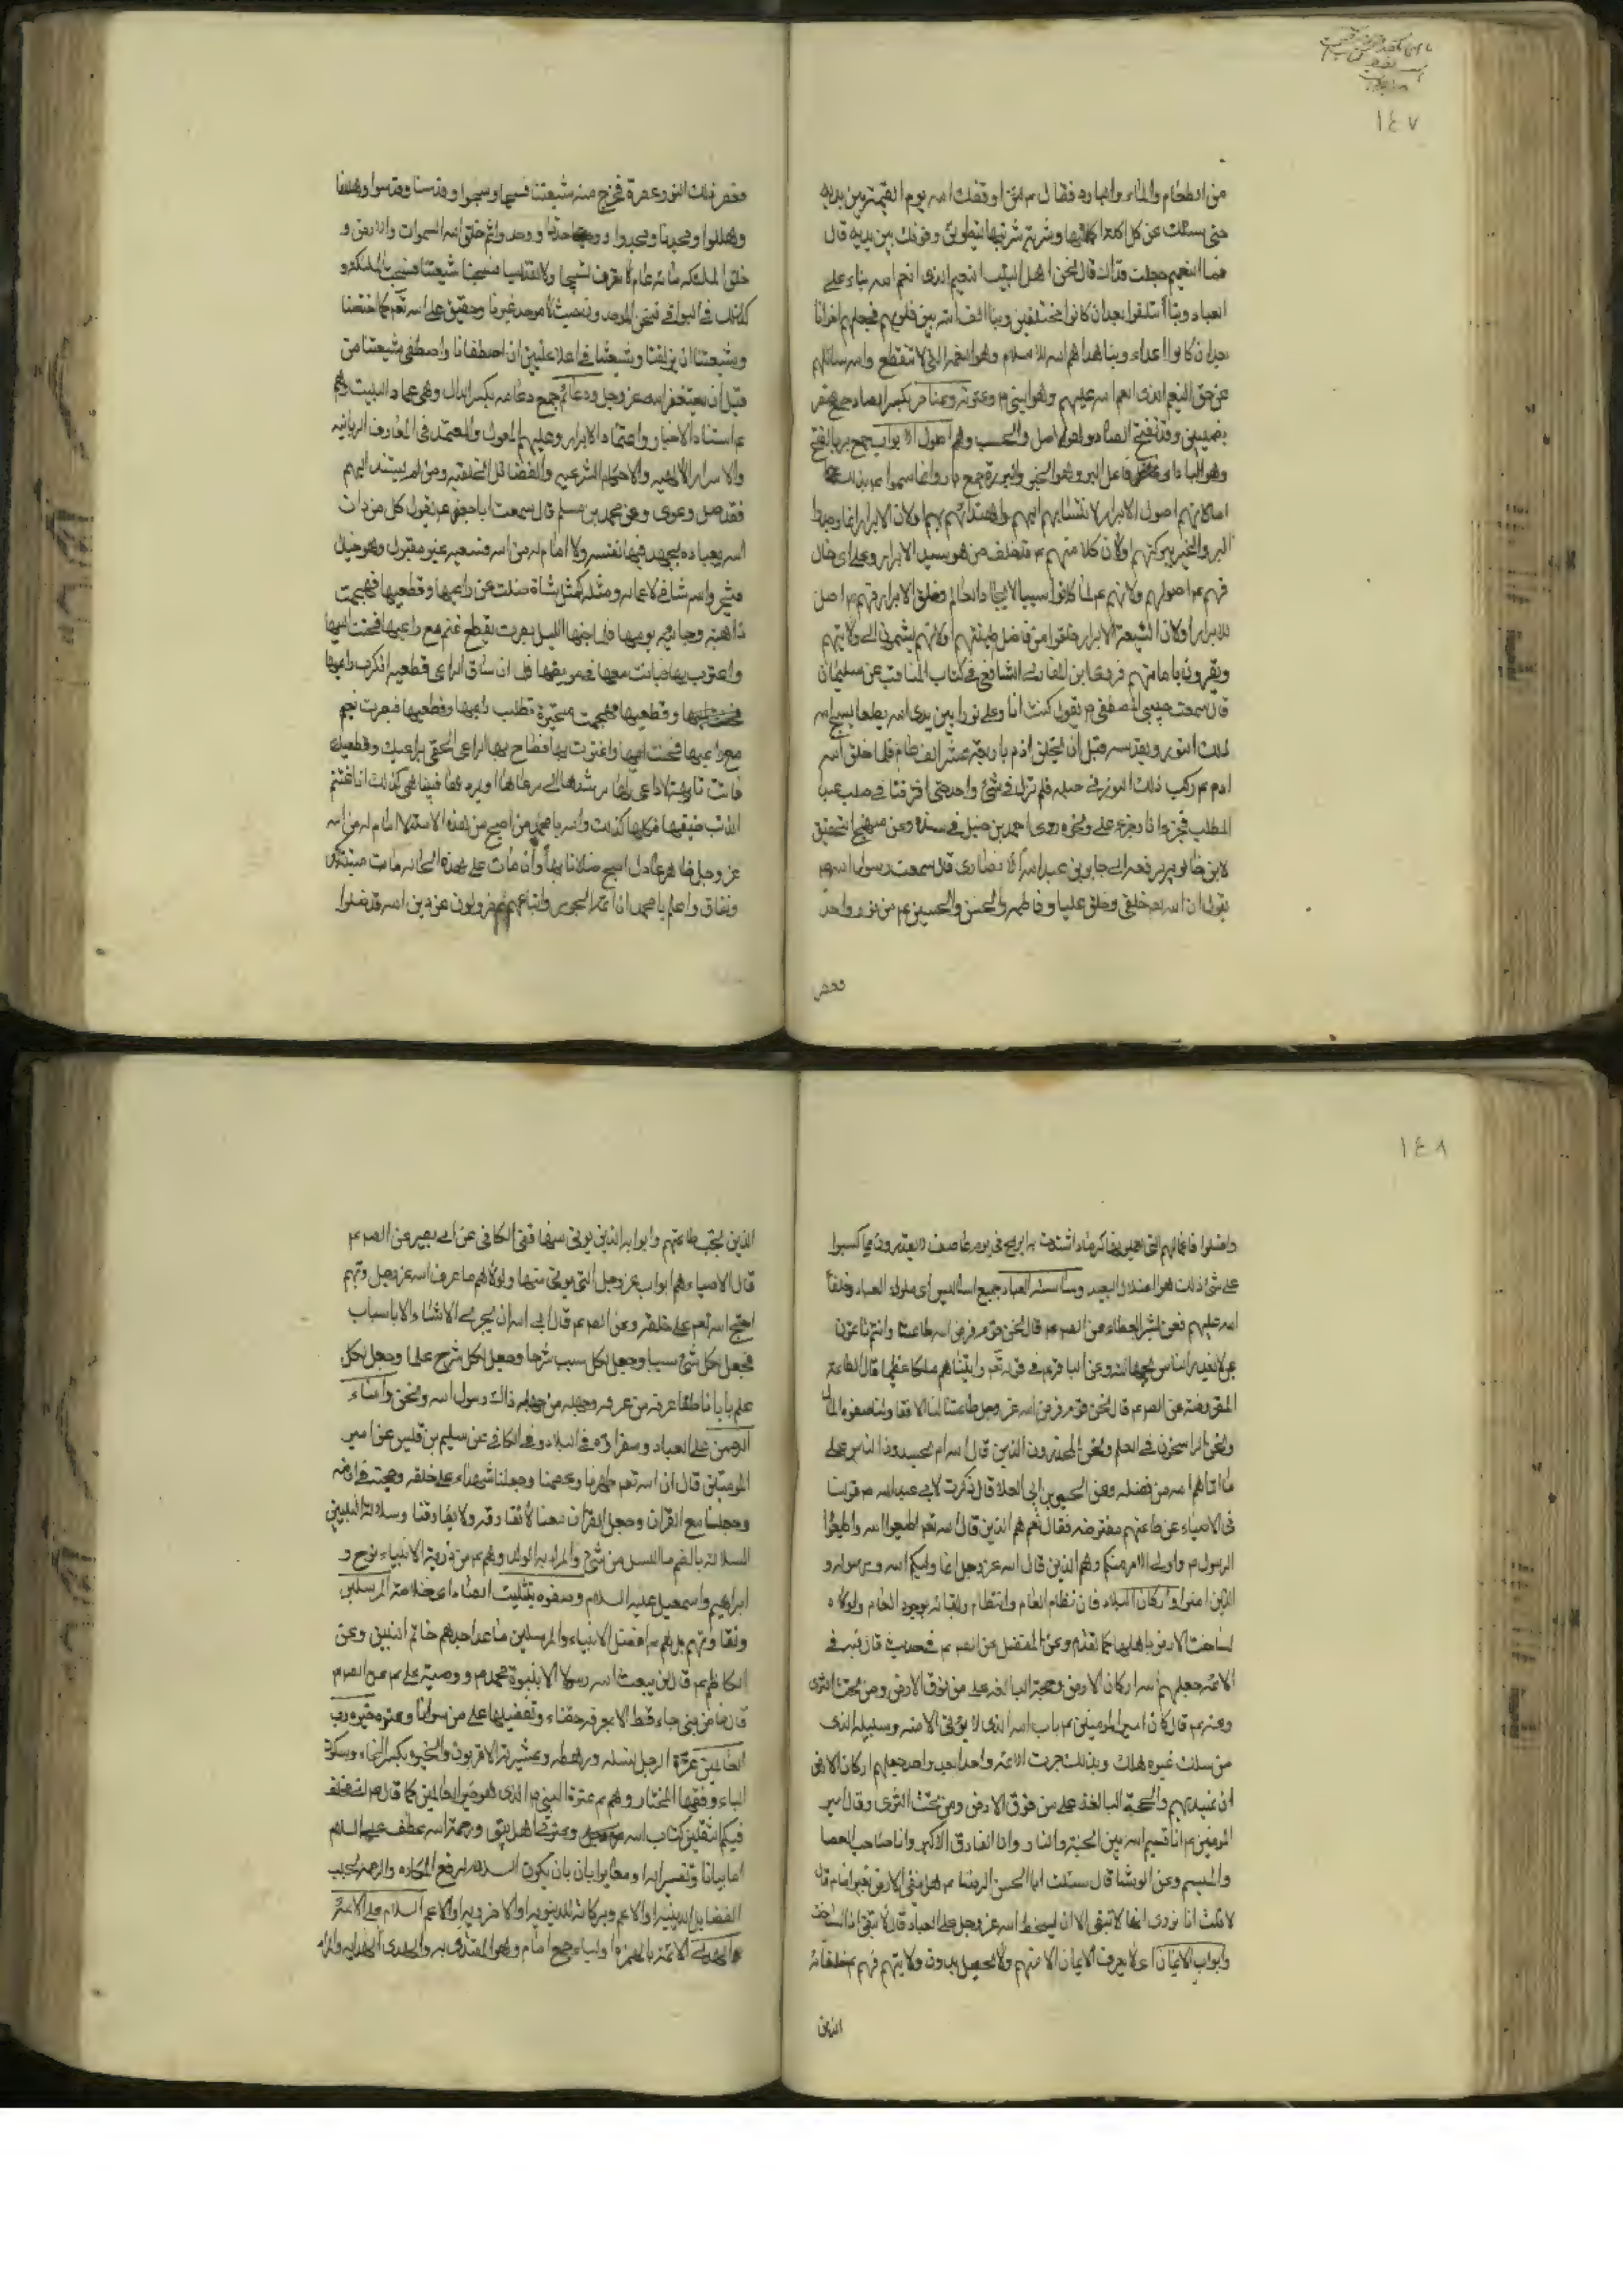 ١٤٧
من الطعام والماء والبارد فقال م لئن اوقفك الله يوم القيمة بين يديه
حتى سئلك عن كل اكلة اكلتها وشربة شربتها ليطولن وقوفك بين يديه قال
فما النعيم جعلت فداك قال نحن اهل البيت النعيم الذى انعم الله بنا على
العباد وبنا ائتلفوا بعد ان كانوا مختلفين وبنا الف الله بين قلوبهم فجعلهم اخوانا
بعد ان كانوا اعداء وبنا هداهم الله للاسلام وهو النعمة التى لا تنقطع والله سائلهم
عن حق النعيم الذى انعم الله عليهم وهو النبى م وعترته وعناصر بكسر الصاد جمع عنصر
بضمتين وقد تفتح الصاد وهو الاصل والحسب وهم اصول الابرار جمع بر بالفتح
وهو البار اى فاعل البر وهو الخير والبررة جمع بار وانما سموا عم بذلك
اما لانهم اصول الابرار لانتسابهم اليهم واهتدائهم بهم اولان الابرار انما وصلوا
البر والخير ببركتهم اولان كلا منهم عم قد خلف من هو سيد الابرار وعلى اى حال
فهم عم اصولهم ولانهم عم لما كانوا سببا لايجاد العالم وخلق الابرار فهم عم اصل
للابرار اولان الشيعة الابرار خلقوا من فاضل طينتهم اولانهم ينتمون الى ولايتهم
ويقرون بامامتهم فروى ابن المغازلى الشافعى فى كتاب المناقب عن سلمان
قال سمعت حبيبى المصطفى م يقول كنت انا وعلى نورا بين يدى الله مطيعا يسبح الله
ذلك النور ويقدسه قبل ان يخلق ادم باربعة عشر الف عام فلما خلق الله
ادم عم ركب ذلك النور فى صلبه فلم نزل فى شئ واحد حتى افترقنا فى صلب عبد
المطلب فجزء انا وجزء على ونحوه روى احمد بن حنبل فى مسنده وعن منهج التحقيق
لابن خالويه يرفعه الى جابر بن عبد الله الانصارى قال سمعت رسول الله ص
يقول ان الله خلقنى وخلق عليا وفاطمة والحسن والحسين عم من نور واحد
فعصر
فعصر ذلك النور عصرة فخرج منه شيعتنا فسبحنا وسبحوا وقدسنا وقدسوا وهللنا
وهللوا ومجدنا ومجدوا ووحدنا ووحدوا ثم خلق الله السموات والارض و
خلق الملئكة مائة عام لا تعرف تسبيحا ولا تقديسا فسبحنا فسبحت شيعتنا فسبحت الملئكة و
كذلك فى البواقى فنحن الموحدون حيث لا موحد غيرنا وحقيق على الله تعم كما اختصنا
وشيعتنا ان يزلفنا وشيعتنا فى اعلا عليين ان الله اصطفانا واصطفى شيعتنا من
قبل ان نكون الله عز وجل ودعائم جمع دعامه بكسر الدال وهى عماد البيت وهم
عم استناد الاخيار واعتماد الابرار وعليهم المعول والمعتمد فى المعارف الربانيه
والاسرار الالهيه والاحكام الشرعيه والفضائل الخلقيه ومن لم يستند اليهم
فقد ضل وغوى وعن محمد بن مسلم قال سمعت ابا جعفر عم يقول كل من دان
الله بعباده يجهد فيها نفسه ولا امام له من الله فسعيه غير مقبول وهو ضال
متحير والله شانئ لاعماله ومثله كمثل شاة ضلت عن راعيها وقطيعها فهجمت
ذاهبة وجائية يومها فلما جنها الليل بصرت بقطيع غنم مع راعيها فحنت اليها
واغترت بها فباتت معها فى مربضها فلما ان ساق الراعى قطيعه انكرت راعيها
وقطيعها فهجمت متحيرة تطلب راعيها وقطيعها فبصرت بغنم
مع راعيها فحنت اليها واغترت بها فصاح بها الراعى الحقى براعيك وقطيعك
فانت تائهة لا راعى لها يرشدها الى مرعاها او يردها فبينا هى كذلك اذا اغتنم
الذئب ضيعتها فاكلها كذلك والله يا محمد من اصبح من هذه الامة لا امام له من الله
عز وجل ظاهر عادل اصبح ضالا تائها وان مات على هذه الحاله مات ميتة كفر
ونفاق واعلم يا محمد ان ائمة الجور واتباعهم لمعزولون عن دين الله قد ضلوا
١٤٨
واضلوا فاعمالهم التى يعملونها كرماد اشتدت به الريح فى يوم عاصف لا يقدرون مما كسبوا
على شئ ذلك هو الضلال البعيد وساسة العباد جميع السائس اى ملوك العباد وخلفاء
الله عليهم فعن بشير العطار عن الصم عم قال نحن قوم فرض الله طاعتنا وانتم تأتمون
بمن لا يعذر الناس بجهالته وعن الباقر عم فى قوله تعم واتيناهم ملكا عظيما قال الطاعة
المفروضة عن الصم عم قال نحن قوم فرض الله عز وجل طاعتنا لنا الانفال ولنا صفو المال
ونحن الراسخون فى العلم ونحن المحسودون الذين قال الله ام يحسدون الناس على
ما اتاهم الله من فضله وعن الحسين بن ابى العلا قال ذكرت لابى عبد الله م قولنا
فى الاوصياء عن طاعتهم مفترضه فقال نعم هم الذين قال الله تعم اطيعوا الله واطيعوا
الرسول م واولى الامر منكم وهم الذين قال الله عز وجل انما وليكم الله ورسوله و
الذين امنوا واركان البلاد فان نظام العالم وانتظامه وبقائه بوجود الامام ولولاه
لساخت الارض باهلها كما تقدم وعن المفضل عن الصم عم فى حديث قال فيه فى
الائمة جعلهم الله اركان الارض وحجته البالغه على من فوق الارض ومن تحت الثرى
وعنه عم قال كان امير المؤمنين عم باب الله الذى لا يؤتى الا منه وسبيله الذى
من سلك غيره هلك وبذلك جرت الائمة واحدا بعد واحد جعلهم اركان الارض
ان تميد بهم والحجة البالغة على من فوق الارض ومن تحت الثرى وقال امير
المؤمنين عم انا قسيم الله بين الجنة والنار وانا الفاروق الاكبر وانا صاحب العصا
والميسم وعن الوشا قال سئلت ابا الحسن الرضا عم هل تبقى الارض بغير امام قال
لا قلت انا نروى انها لا تبقى الا ان يسخط الله عز وجل على العباد قال لا تبقى اذا لساخت
وابواب الايمان اى لا يعرف الايمان الا منهم ولا يحصل بدون ولايتهم فهم عم خلفائه
الذين
الذين يجب طاعتهم وابوابه الذين يؤتى منها ففى الكافى عن ابى بصير عن الصم عم
قال الاوصياء هم ابواب عز وجل التى يؤتى منها ولولاهم ما عرف الله عز وجل وبهم
احتج الله تعم على خلقه وعن الصم عم قال ابى الله ان يجرى الاشياء الا باسباب
فجعل لكل شئ سببا وجعل لكل سبب شرحا وجعل لكل شرح علما وجعل لكل
علم بابا ناطقا عرفه من عرفه وجهله من جهله ذاك رسول الله ونحن وامناء
الرحمن على العباد وسفراؤه فى البلاد وفى الكافى عن سليم بن قليس عن امير
المؤمنين قال ان الله تعم طهرنا وعصمنا وجعلنا شهداء على خلقه وحجته فى ارضه
وجعلنا مع القران وجعل القران معنا لا نفارقه ولا يفارقنا وسلالة النبيين
السلالة بالضم ما انسل من شئ والمراد به الولد وهم عم من ذرية الانبياء نوح و
ابراهيم واسمعيل عليه السلام وصفوه بتثليث الصاد اى خلاصة المرسلين
ونقاوتهم بل هم عم افضل الانبياء والمرسلين ما عدا جدهم خاتم النبيين وعن
الكاظم عم قال لن يبعث الله رسولا الا بنبوة محمد ص ووصية على عم عن الصم عم
قال ما من نبى جاء قط الا بمعرفة حقنا وتفضيلها على من سوانا وعترة خيرة رب
العالمين عترة الرجل نسله ورهطه وعشيرته الاقربون والخيره بكسر الخاء وسكون
الياء وفتحها المختار وهم عم عترة النبى م الذى هو خير العالمين كما قال م انى مخلف
فيكم الثقلين كتاب الله وعترتى اهل بيتى ورحمة الله عطف على السلام
اما بيانا وتفسيرا له او مغايرا بان يكون السلام لرفع المكاره والرحمة لجلب
الفضايل الدينيه او الاعم وبركاته الدنيويه او الاخرويه او الاعم السلام على الائمة
الهدى الائمة بالهمزة او الياء جمع امام وهو المقتدى به والهدى الهدايه والمراد